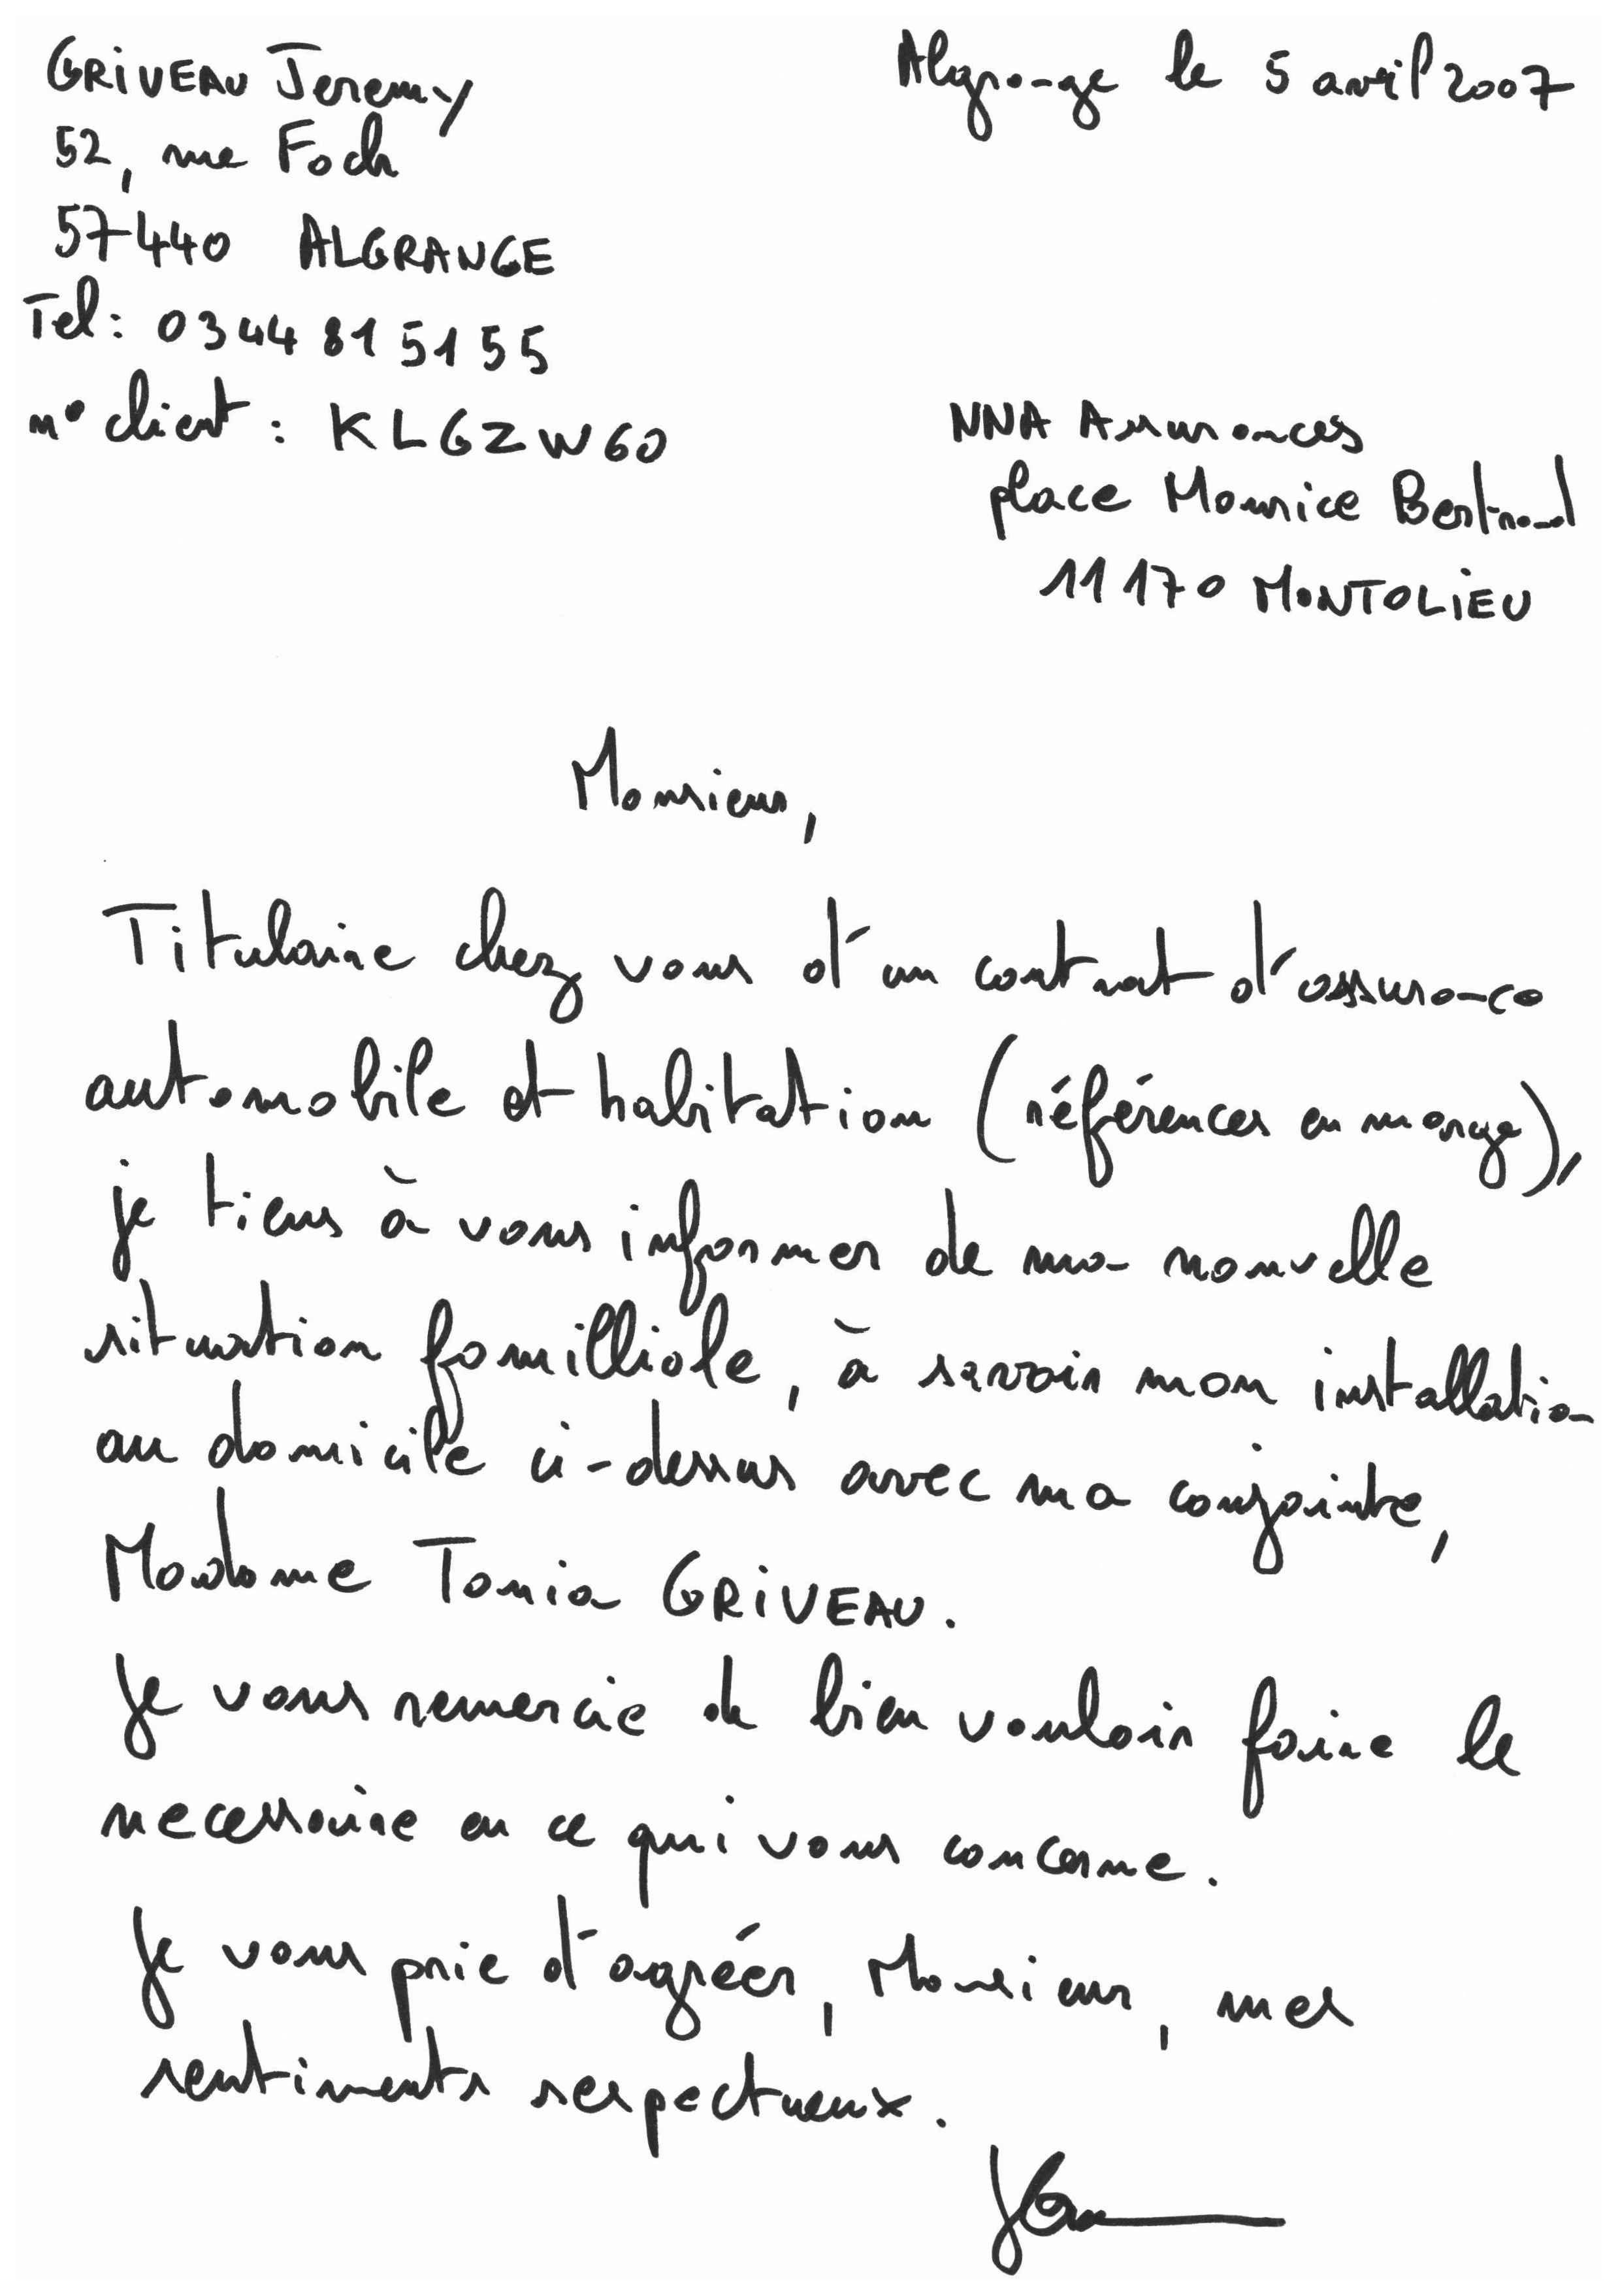 GRIVEAU Jeremy
Algrange le 5 avril 2007
52, rue Foch
57440 ALGRANGE
Tel : 03 44 81 51 55
n° client : KLGZW60
NNA Assurances
place Maurice Bertrand
11170 MONTOLIEU
Monsieur,
Titulaire chez vous d'un contrat d'assurance
automobile et habitation (références en marge),
je tiens à vous informer de ma nouvelle
situation familliale, à savoir mon installation
au domicile ci-dessus avec ma conjointe,
Madame Tania GRIVEAU.
Je vous remercie de bien vouloir faire le
necessaire en ce qui vous concerne.
Je vous prie d'agréer, Monsieur, mes
sentiments respectueux.